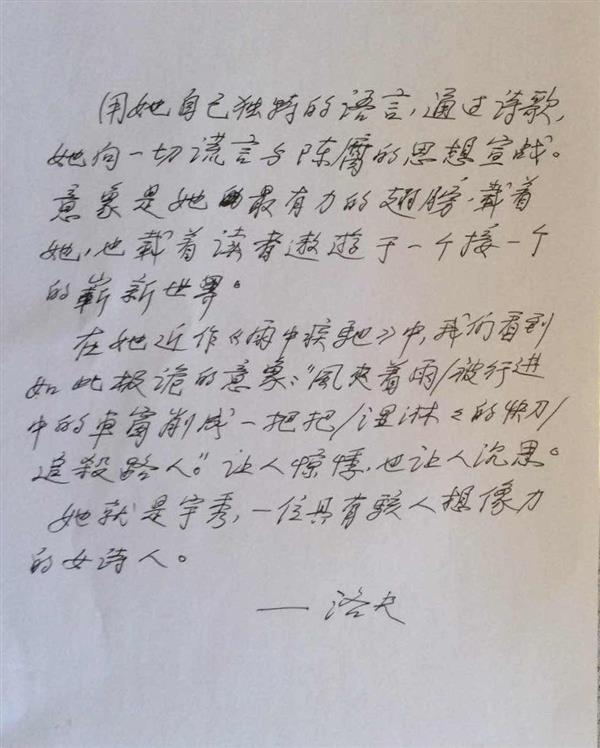 用她自己独特的语言,通过诗歌,
她向一切谎言与陈腐的思想宣战。
意象是她最有力的翅膀,載着
她,也載着读者遨遊于一个接一个
的嶄新世界。
在她近作《雨中疾馳》中,我们看到
如此极诡的意象:“風夾着雨/被行进
中的車窗削成一把把/湿淋淋的快刀/
追殺路人”。让人惊悸,也让人沉思。
她就是宇秀,一位具有骇人想像力
的女诗人。
—— 洛夫